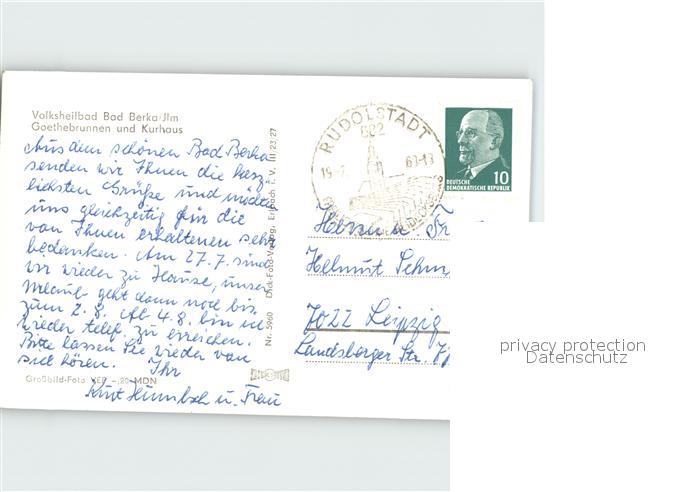 Volksheilbad Bad Berka/Jlm
Goethebrunnen und Kurhaus
Aus dem schönen Bad Berka
senden wir Ihnen die herz-
lichsten Grüße und möchten
uns gleichzeitig für die
von Ihnen erhaltenen sehr
bedanken. Am 27.7. sind
wir wieder zu Hause, unser
Urlaub geht dann noch bis
zum 2.8. Ab 4.8. bin ich
wieder telef. zu erreichen.
Bitte lassen Sie wieder von
sich hören. Ihr
Kurt u. Frau
Großbild-Foto VEB -,20 MDN
Nr. 5960 Dick-Foto-Verlag, Erlbach i. V. III 23 27
RUDOLSTADT
802
10
DEUTSCHE
DEMOKRATISCHE REPUBLIK
Herrn u. Fr
Helmut Schm
7022 Leipzig
Landsberger Str. 7
privacy protection
Datenschutz